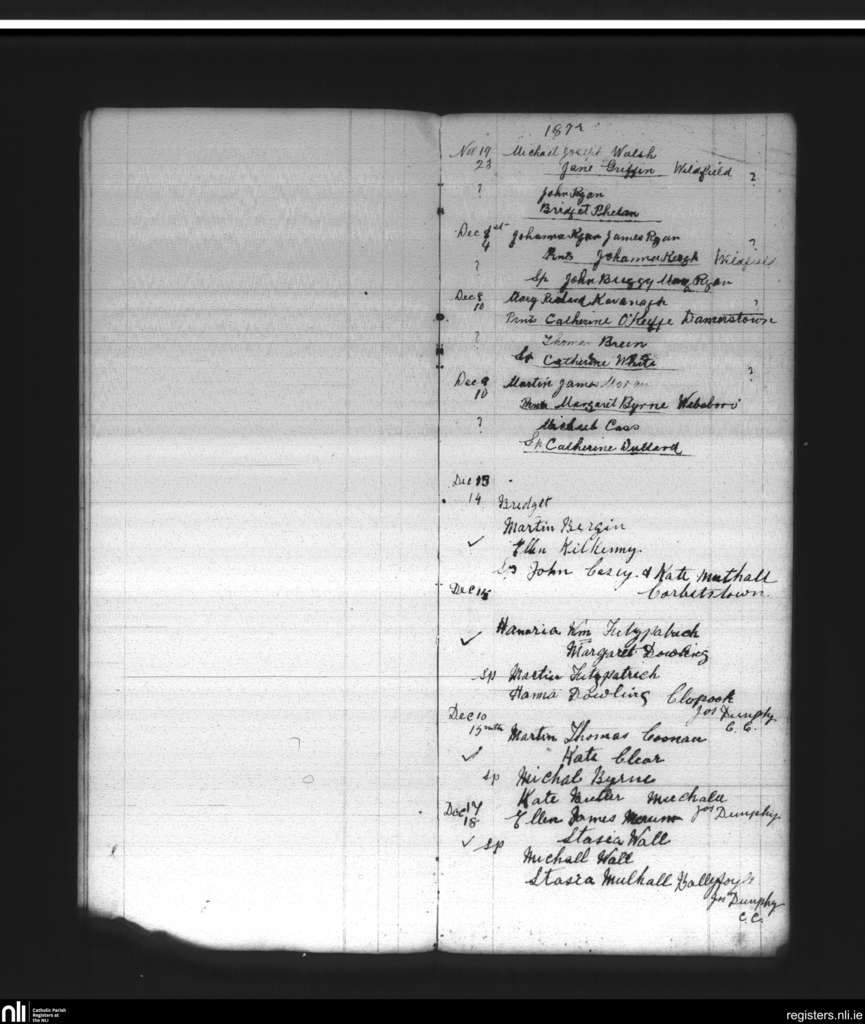 187
Nov 19 Michael Joseph Walsh
23 Jane Griffin Wildfield ?
? John Ryan
Bridget Phelan
Dec 1st Johanna Ryan James Ryan ?
4 Prnts Johanna Keogh Wildfield
? Sp John Buggy Mary Ryan
Dec 8 Mary Richard Kavanagh ?
10 Prnts Catherine O'Keeffe Damerstown
? Thomas Brein
Sp Catherine White
Dec 8 Martin James Moran ?
10 Prnts Margaret Byrne
? Michael Cass
Sp Catherine Dullard
Dec 13
14 Bridget
Martin Bergin
✓ Ellen Kilkenny.
Sp John Casey & Kate Muthall
Dec 15 Corbetstown.
Hanoria Km Fitzpatrick
✓ Margaret Dowling
Sp Martin Fitzpatrick
Hanna Dowling Clopook
Dec 10 Jos Dunphy
15 Martin Thomas Coonan C.C.
✓ Kate Clear
Sp Michal Byrne
Kate Butler
Dec 17 Ellen James Jos Dunphy
18 Stasia Wall
✓ Sp
Michall Wall
Stasia Mulhall Ballyfoyle
Jos Dunphy
C.C.
nli Catholic Parish
Registers at
the NLI
registers.nli.ie